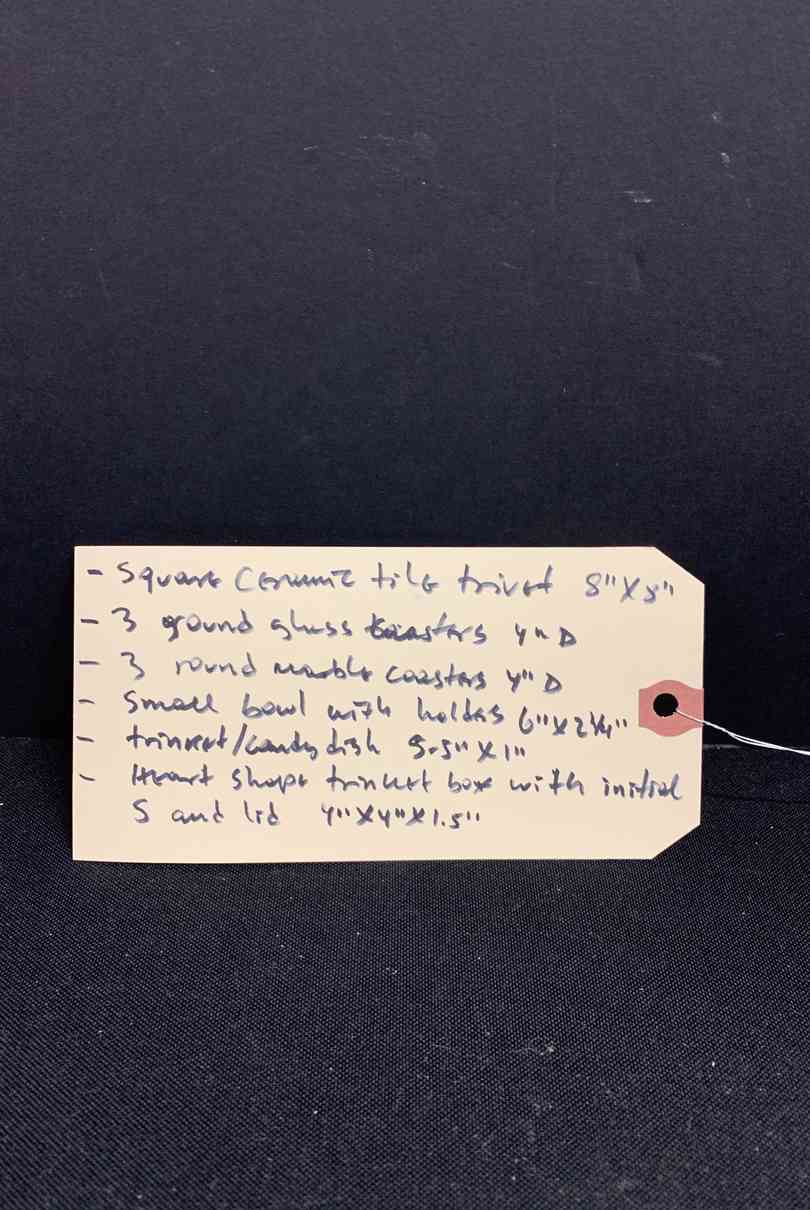 - Square Ceramic tile trivet 8" X 8"
- 3 ground glass coasters 4" D
- 3 round marble coasters 4" D
- Small bowl with holdes 6" X 2¼"
- trinket/candy dish 5.5" X 1"
- Heart Shape trinket box with initial
S and lid 4" X 4" X 1.5"